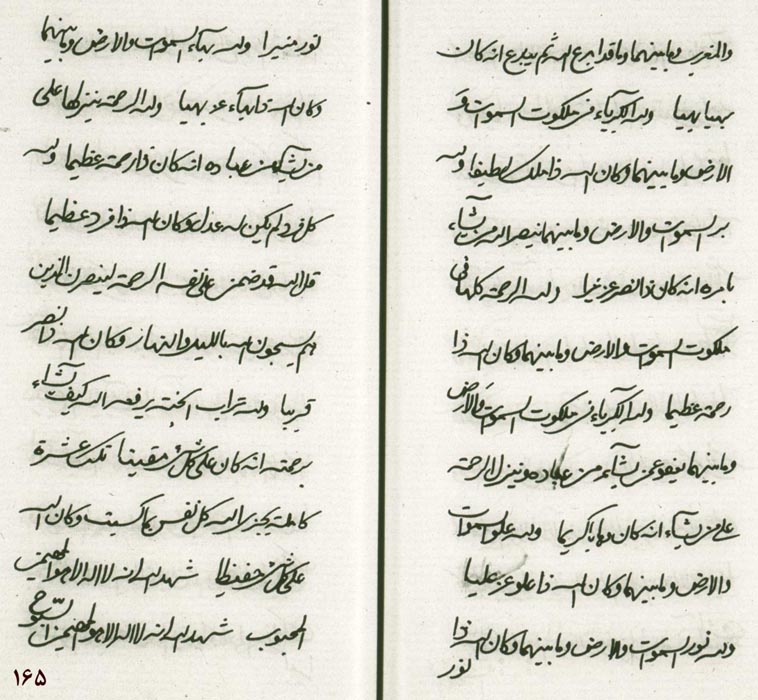 والمغرب وما بينهما وما قد ابدع الله ثم يبدع انه كان
بهيا بهيا ولله الكبرياء فى ملكوت السموت و
الارض وما بينهما وكان الله ذا ملك لطيفا ولله
بر السموت والارض وما بينهما ينصر الله من يشاء
بامره انه كان ذا نصر عزيزا ولله الرحمة كلها فى
ملكوت السموت والارض وما بينهما وكان الله ذا
رحمة عظيما ولله الكبرياء فى ملكوت السموت والارض
وما بينهما يعفو عمن يشاء من عباده وينزل الرحمة
على من يشاء انه كان وهابا كريما ولله علو السموات
والارض وما بينهما وكان الله ذا علو عز عليا
ولله نور السموات والارض وما بينهما وكان الله ذا
نور
نور منيرا ولله بهاء السموت والارض وما بينهما
وكان الله ذا بهاء عز بهيا ولله الرحمة ينزلها على
من يشاء من عباده انه كان ذا رحمة عظيما ولله
كل فرد لم يكن له عدل وكان الله ذا فرد عظيما
قل الله قد ضمن على نفسه الرحمة لينصرن الذين
هم يسبحون الله بالليل والنهار وكان الله ذا نصر
قريبا ولله تراب الجنة يرفعه الله كيف يشاء
برحمته انه كان على كل شئ مقيتا تلك عشرة
كاملة يجزى الله كل نفس بما كسبت وكان الله
على كل شئ حفيظا شهد الله انه لا اله الا هو المهيمن
المحبوب شهد الله انه لا اله الا هو المهيمن السبوح
۱۶۵